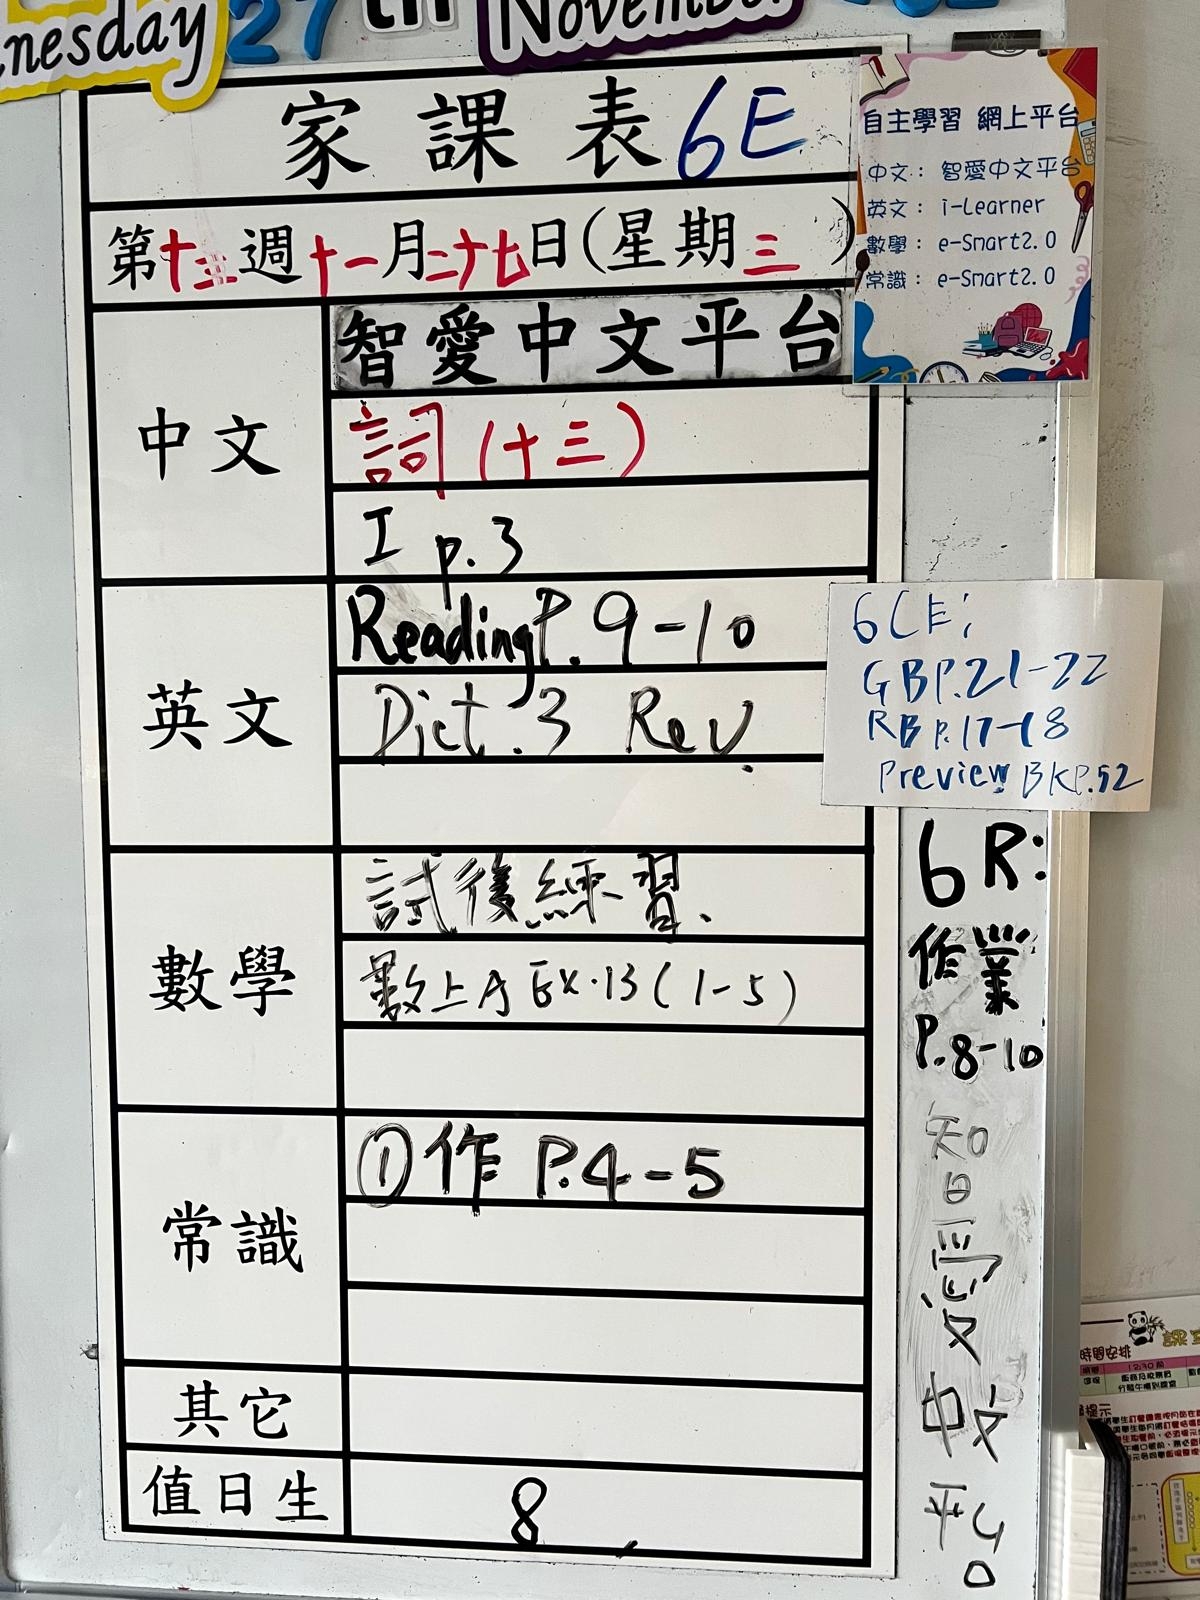 nesday 27th November
家課表6E
第十三週十一月二十七日(星期三)
自主學習 網上平台
中文： 智愛中文平台
英文： i-Learner
數學： e-Smart2.0
常識： e-Smart2.0
中文
智愛中文平台
詞(十三)
I p.3
英文
Reading P.9-10
Dict.3 Rev.
6CE:
GB P.21-22
RB P.17-18
Preview BK P.52
數學
試後練習.
數上A Ex.13(1-5)
6R:
作業
P.8-10
智愛中文平台
常識
①作 P.4-5
其它
值日生
8
時間安排
12:30前